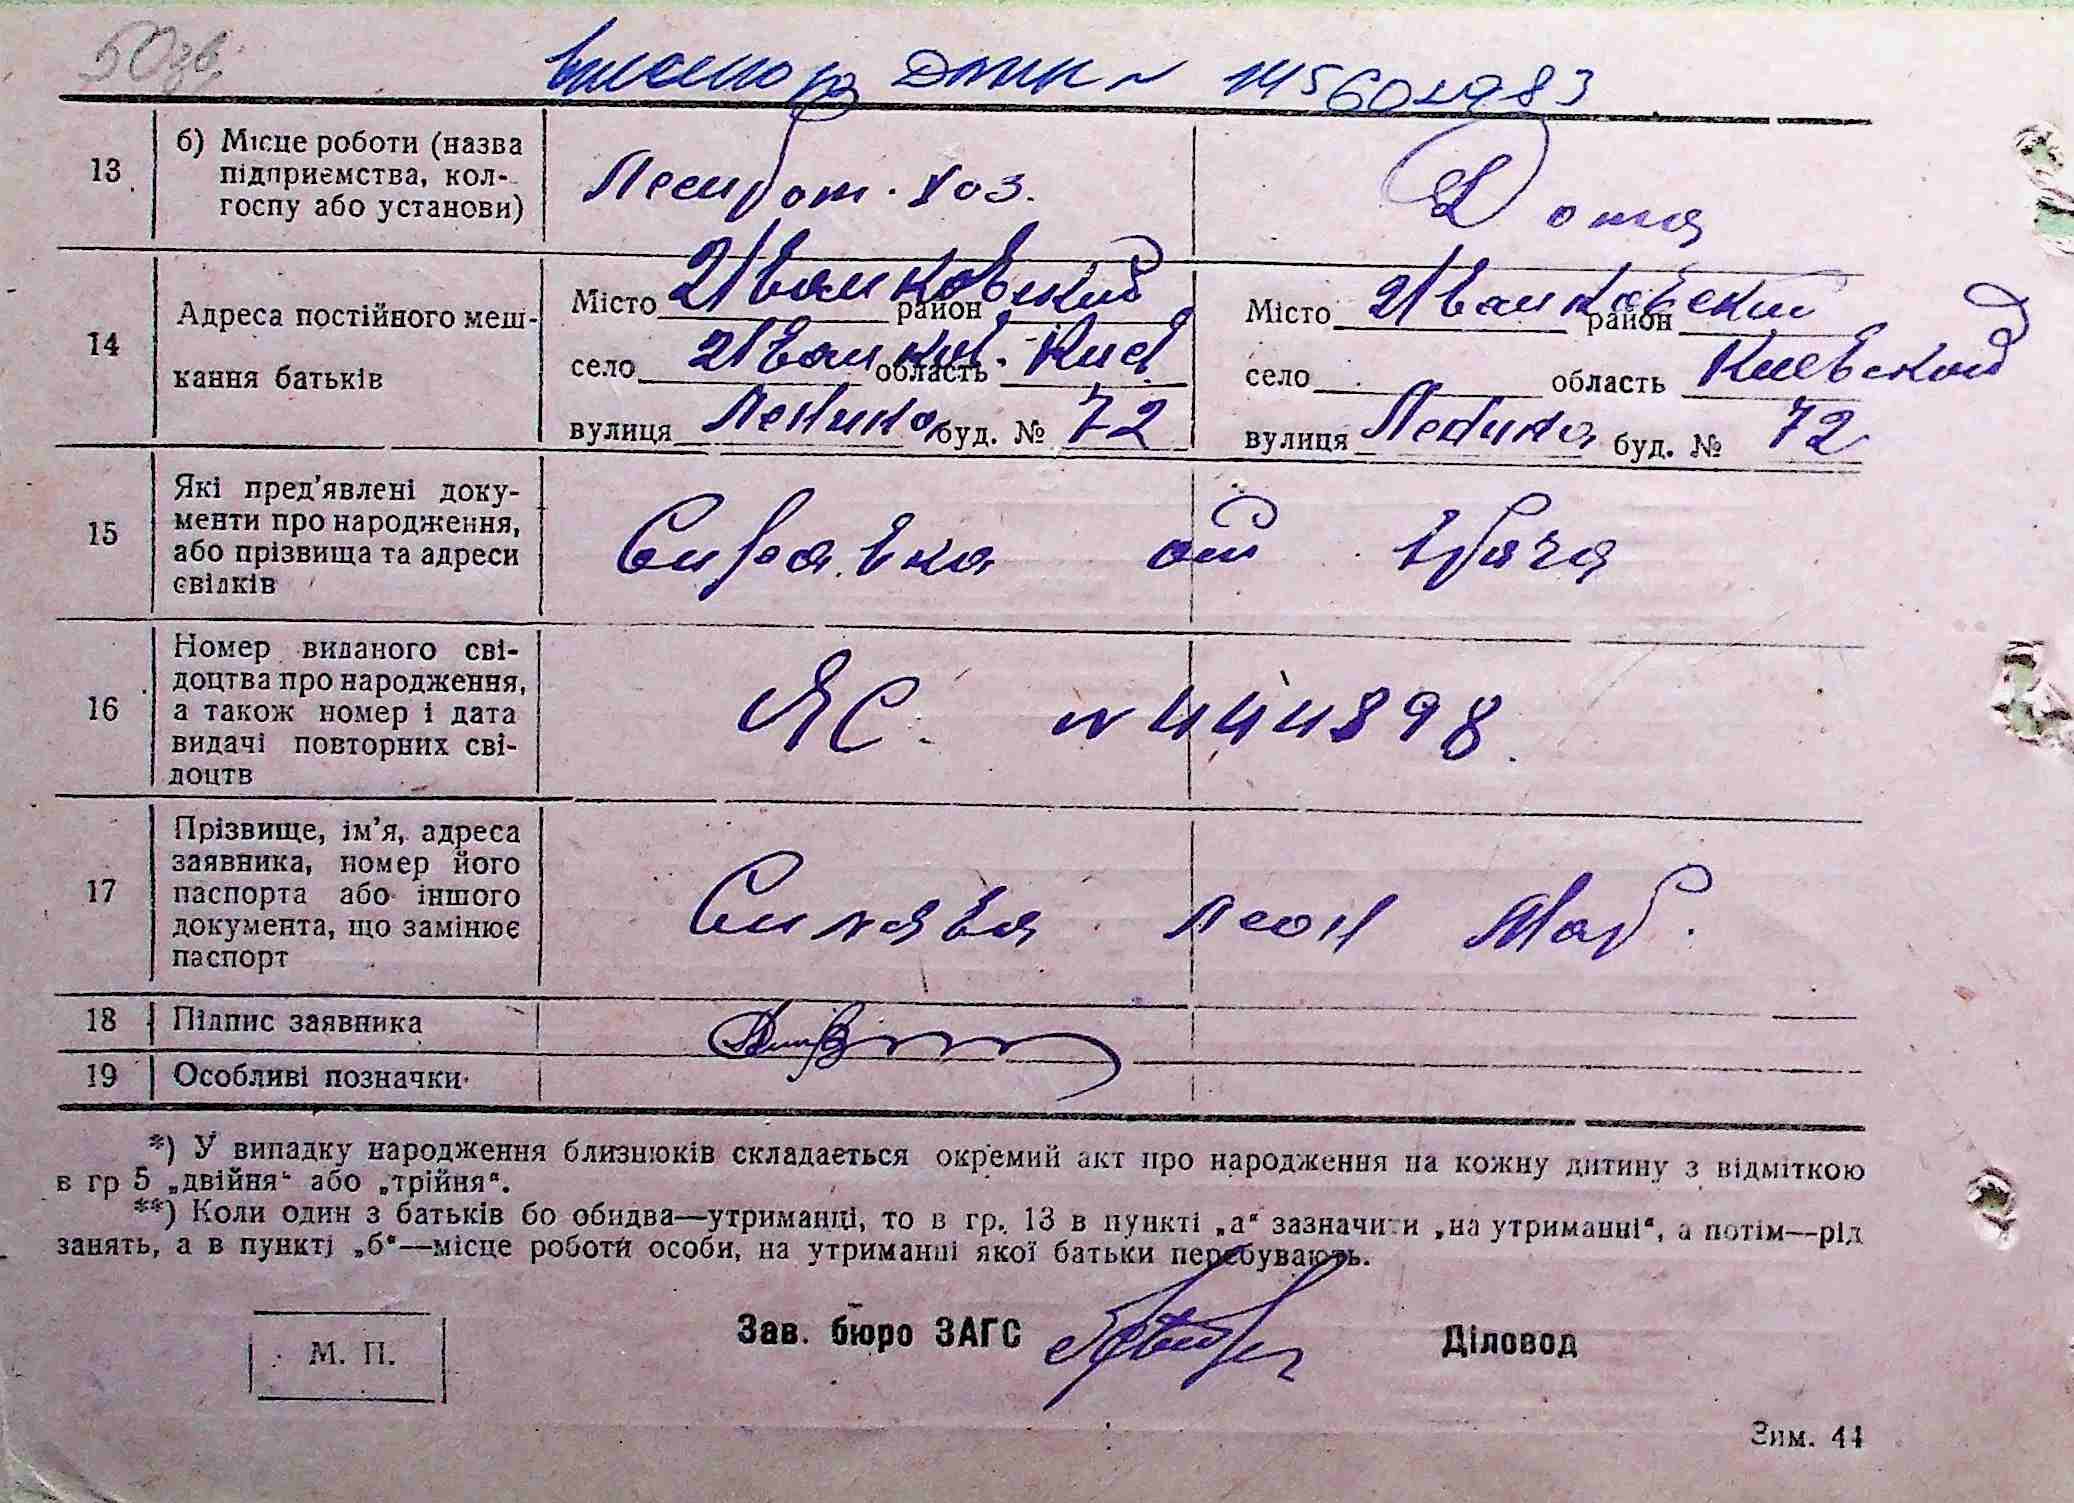 50 зв.
13 б) Місце роботи (назва підприємства, колгоспу або установи)
Леспром. хоз.
Дома
14 Адреса постійного мешкання батьків
Місто Иванковский район
село Иванков. область Киев
вулиця Ленина буд. № 72
Місто Иванковский район
село область Киевской
вулиця Ленина буд. № 72
15 Які пред'явлені доку-
менти про народження,
або прізвища та адреси
свідків
Справка от врача
16 Номер виданого сві-
доцтва про народження,
а також номер і дата
видачі повторних сві-
доцтв
ЯС. № 444898.
17 Прізвище, ім'я, адреса
заявника, номер його
паспорта або іншого
документа, що замінює
паспорт
Синява Леон Мар.
18 Підпис заявника
19 Особливі позначки
*) У випадку народження близнюків складається окремий акт про народження на кожну дитину з відміткою
в гр 5 „двійня“ або „трійня“.
**) Коли один з батьків бо обидва—утриманці, то в гр. 13 в пункті „а“ зазначити „на утриманні“, а потім—рід
занять, а в пункті „б“—місце роботи особи, на утриманні якої батьки перебувають.
Зав. бюро ЗАГС
Діловод
М. П.
Зим. 44